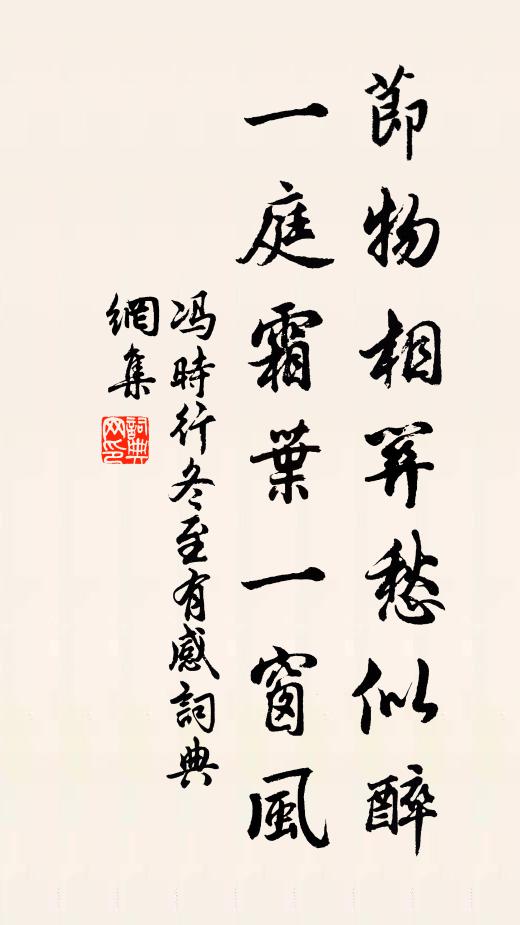 節物相幷愁似醉
一庭霜葉一窗風
冯時行冬至有感詞典
網集
詞典
网印